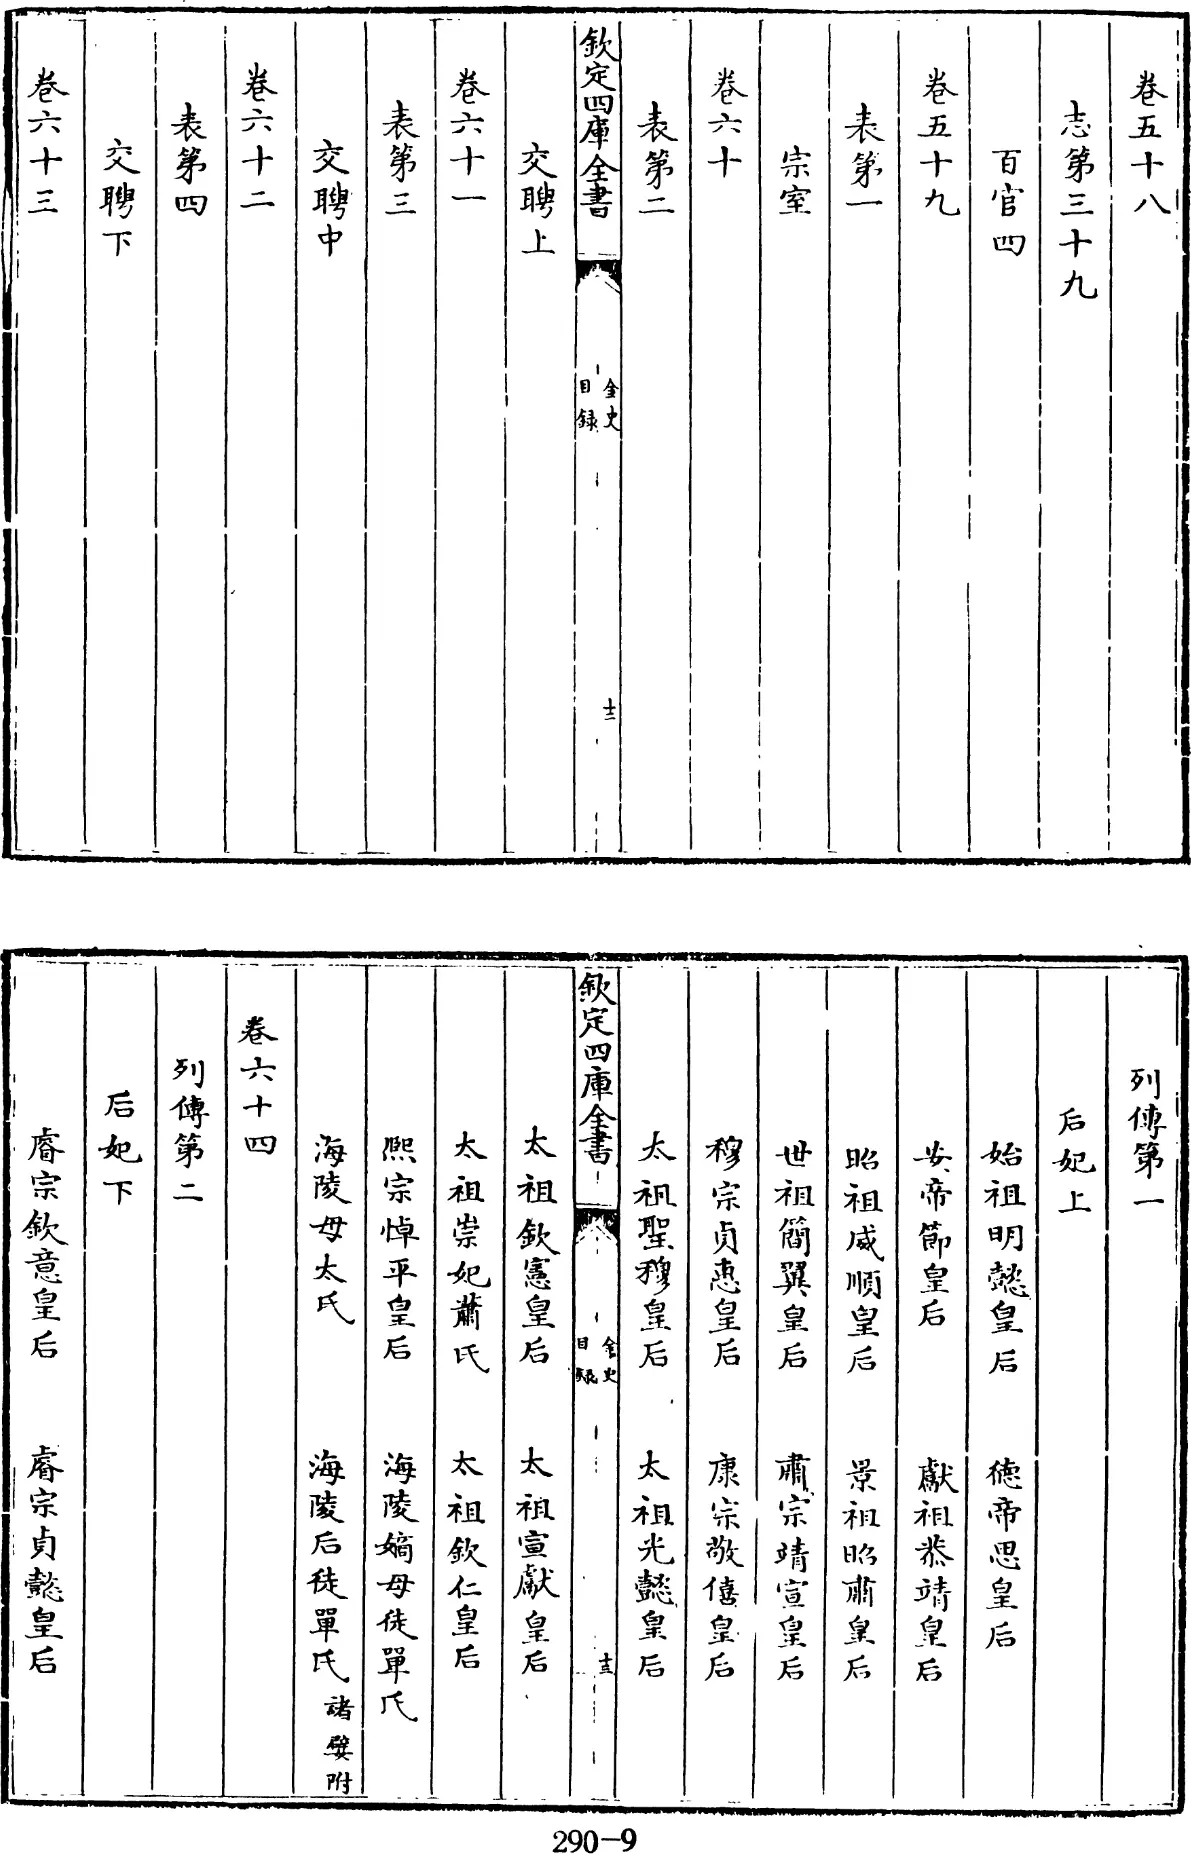 卷五十八
志第三十九
百官四
卷五十九
表第一
宗室
卷六十
表第二
欽定四庫全書
金史
目録
十二
交聘上
卷六十一
表第三
交聘中
卷六十二
表第四
交聘下
卷六十三
列傳第一
后妃上
始祖明懿皇后 德帝思皇后
安帝節皇后 獻祖恭靖皇后
昭祖威順皇后 景祖昭肅皇后
世祖簡翼皇后 肅宗靖宣皇后
穆宗貞惠皇后 康宗敬僖皇后
太祖聖穆皇后 太祖光懿皇后
欽定四庫全書
金史
目録
十三
太祖欽憲皇后 太祖宣獻皇后
太祖崇妃蕭氏 太祖欽仁皇后
熙宗悼平皇后 海陵嫡母徒單氏
海陵母大氏 海陵后徒單氏 諸嬖附
卷六十四
列傳第二
后妃下
睿宗欽意皇后 睿宗貞懿皇后
290-9